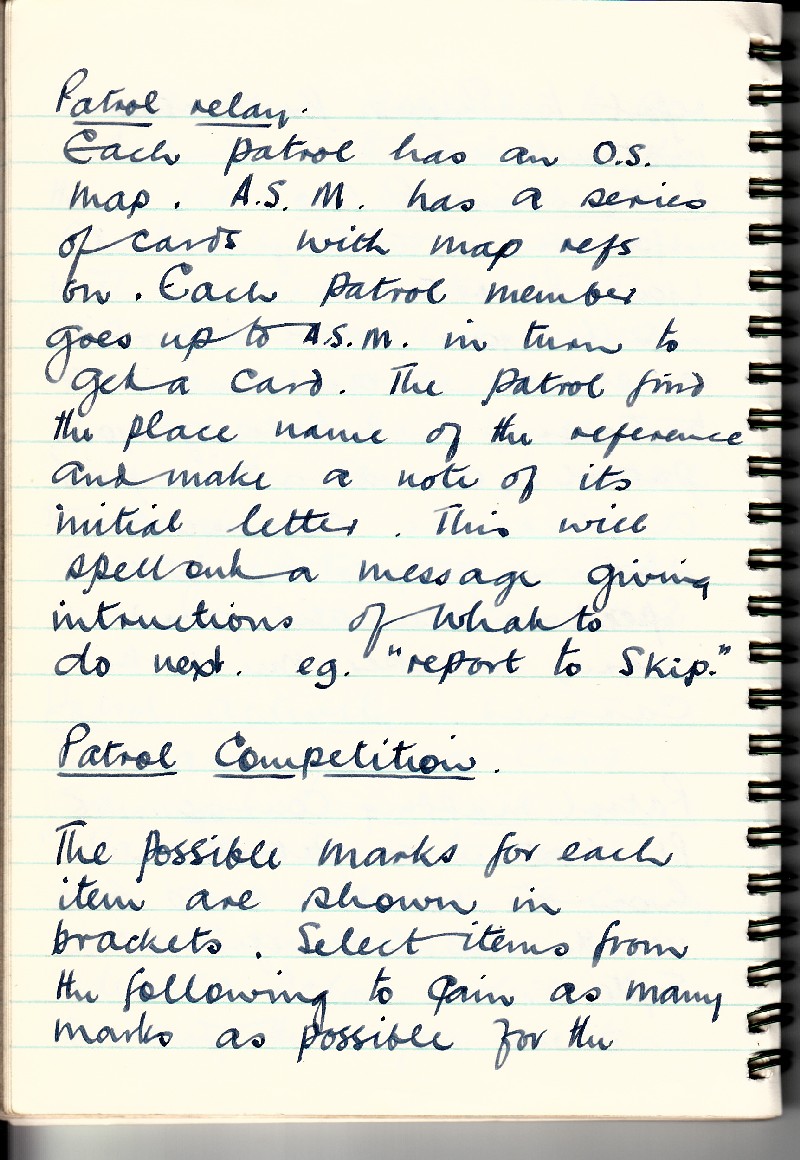 Patrol relay.
Each patrol has an O.S.
map. A.S.M. has a series
of cards with map refs
on. Each patrol member
goes up to A.S.M. in turn to
get a card. The patrol find
the place name of the reference
and make a note of its
initial letter. This will
spell out a message giving
intructions of what to
do next. eg. "report to Skip."
Patrol Competition.
The possible marks for each
item are shown in
brackets. Select items from
the following to gain as many
marks as possible for the